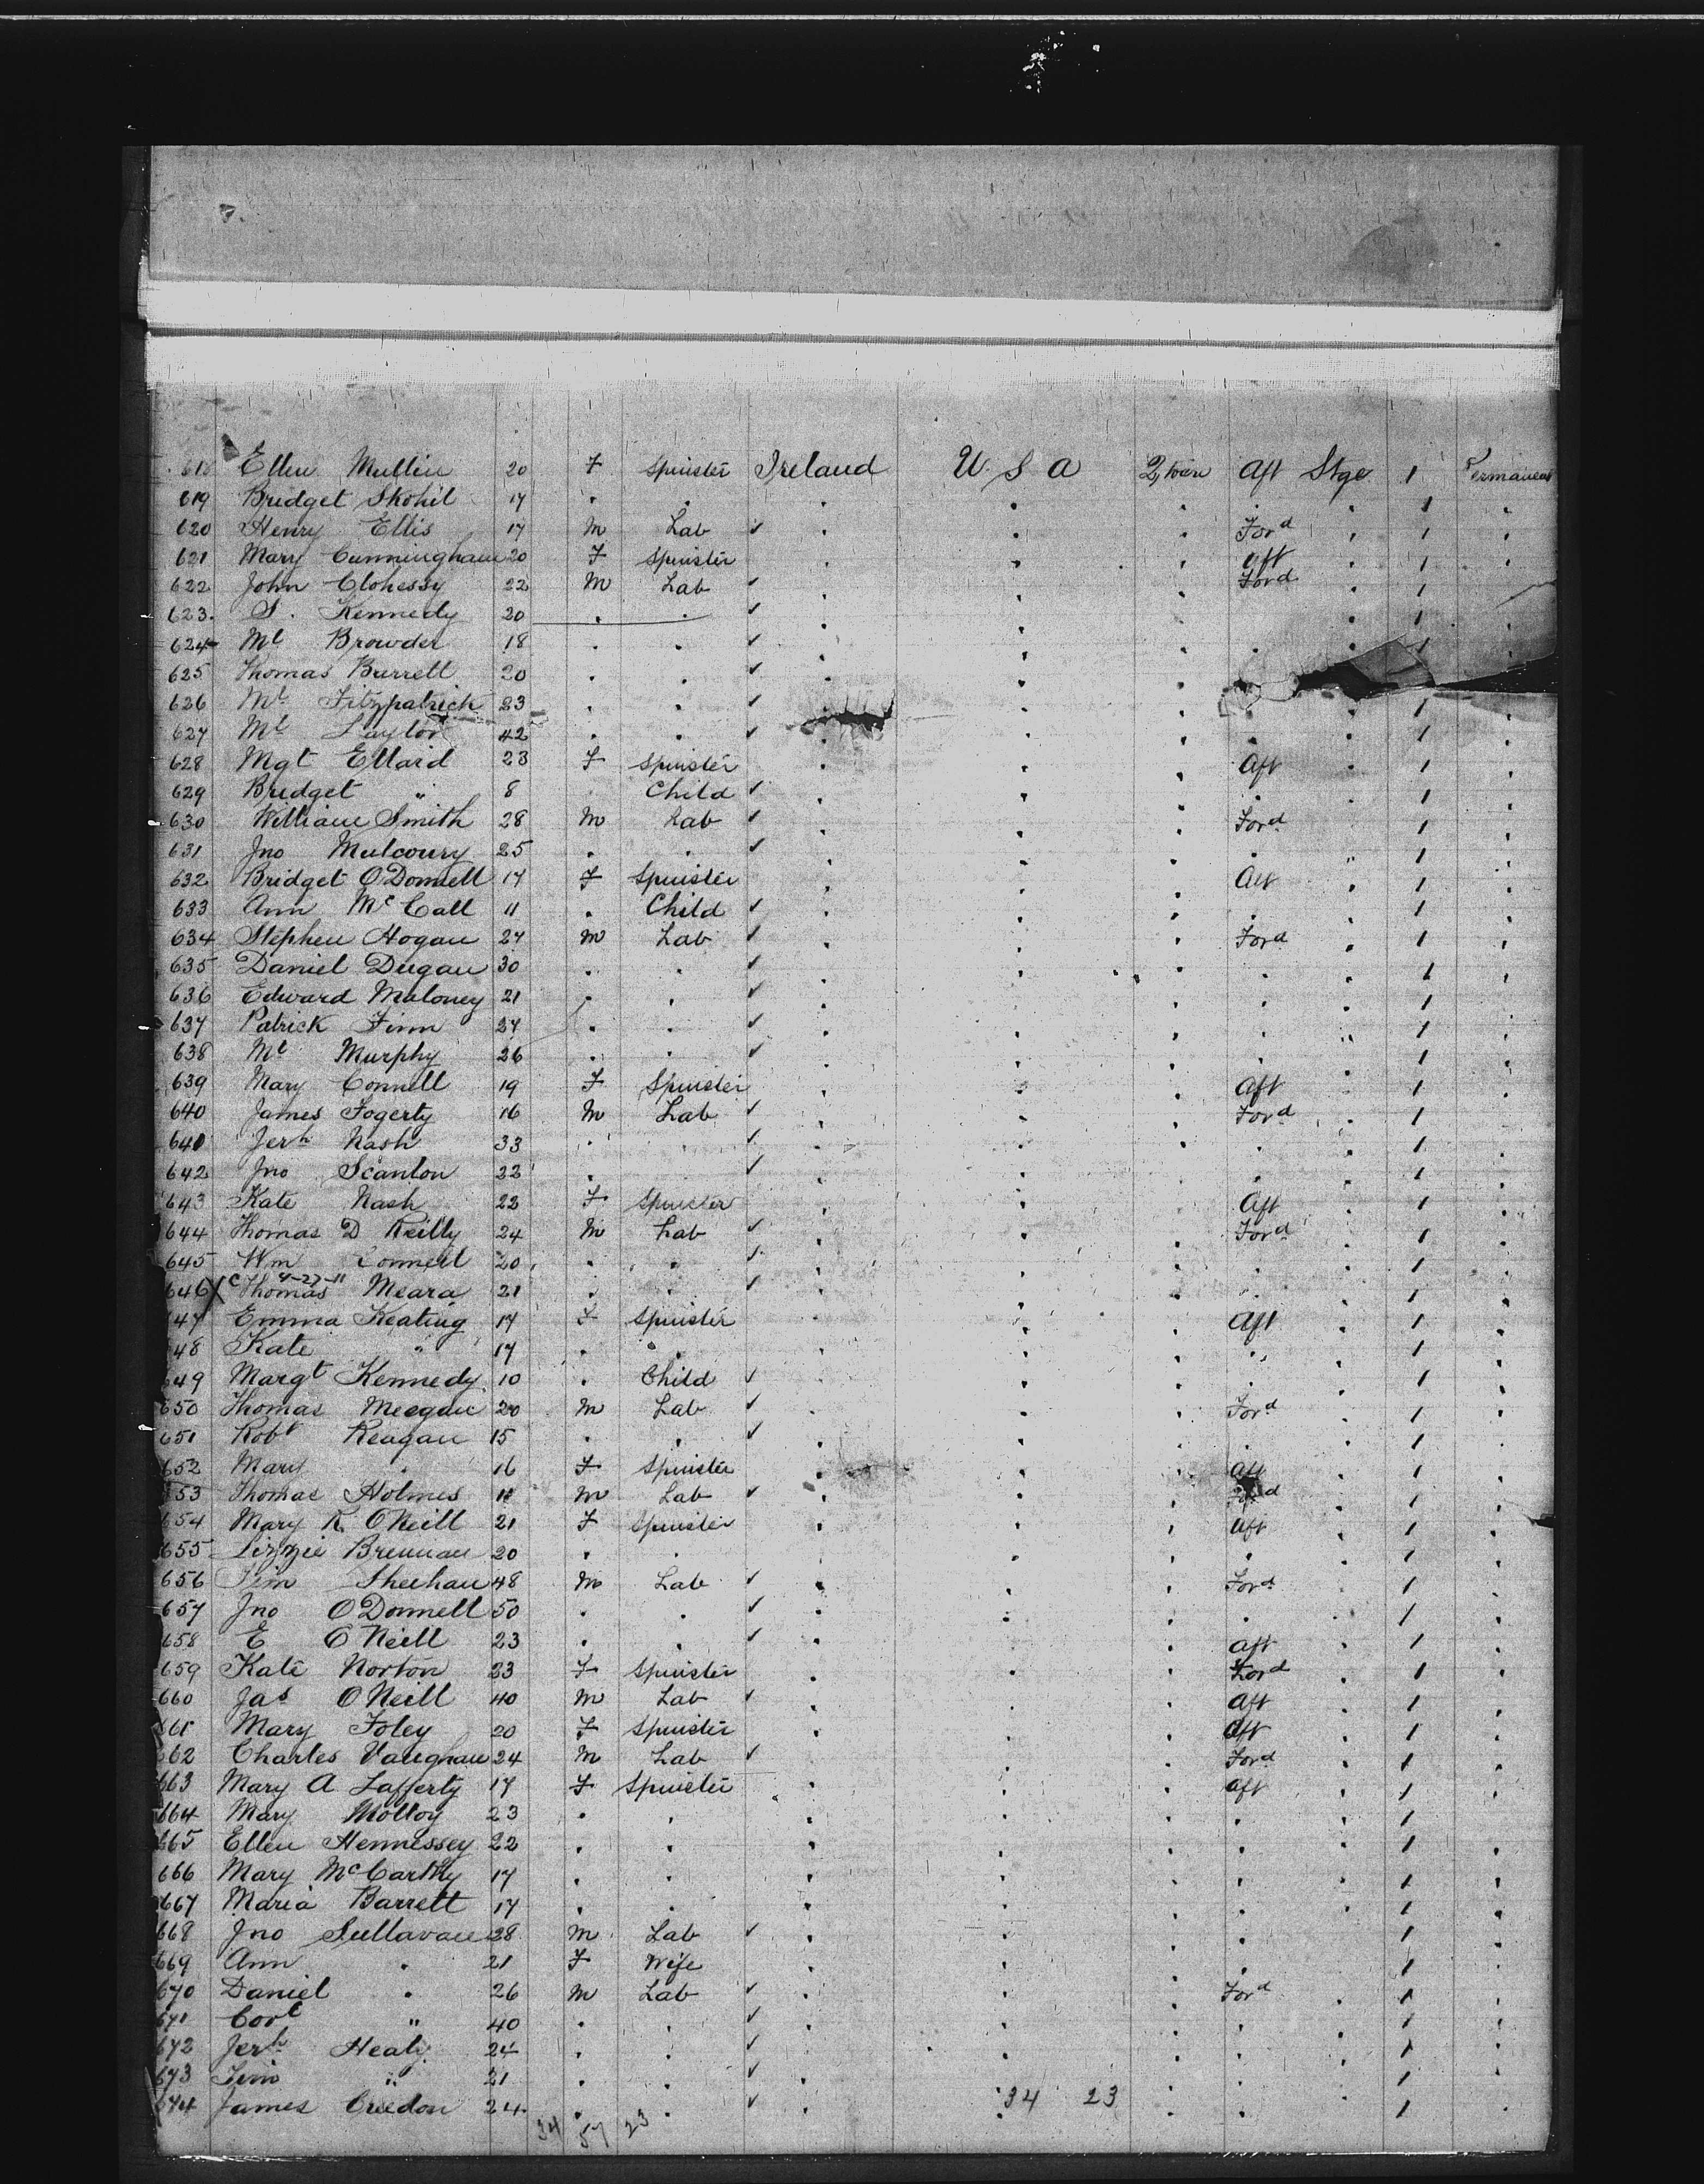 618 Ellen Mullin 20 F Spinster Ireland U. S A Q,town Aft Stge 1 Permanent
619 Bridget Skohil 17 . . . . . . . 1 .
620 Henry Ellis 17 M Lab ✓ . . . Ford . 1 .
621 Mary Cunningham 20 F Spinster . . . Aft . 1 .
622 John Clohessy 22 M Lab ✓ . . . Ford . 1 .
623. S. Kennedy 20 . . ✓ . . . . 1 .
624 Ml Browder 18 . . ✓ . . . . 1
625 Thomas Burrell 20 . . ✓ . . .
626 Ml Fitzpatrick 23 . . ✓ . . . . 1 .
627 Ml Saylor 42 . . ✓ . . . . . 1 .
628 Mgt Ellard 23 F Spinster . . . Aft . 1 .
629 Bridget " 8 Child ✓ . . . . . 1 .
630 William Smith 28 M Lab ✓ . . . Ford . 1 .
631 Jno Mulcoury 25 . . ✓ . . . . " 1 .
632 Bridget O'Donnell 17 F Spinster . . . Aft . 1 .
633 Ann McCall 11 . Child ✓ . . . . . 1 .
634 Stephen Hogan 27 M Lab ✓ . . . Ford . 1 .
635 Daniel Dugan 30 . . ✓ . . . . . 1 .
636 Edward Maloney 21 . . ✓ . . . . . 1 .
637 Patrick Finn 27 . . ✓ . . . . . 1 .
638 Ml Murphy 26 . . ✓ . . . . . 1 .
639 Mary Connell 19 F Spinster . . . Aft . 1 .
640 James Fogerty 16 M Lab ✓ . . . Ford . 1 .
640 Jerh Nash 33 . . ✓ . . . . . 1 .
642 Jno Scanlon 22 . . ✓ . . . . . 1 .
643 Kate Nash 22 F Spinster . . . Aft . 1 .
644 Thomas D Reilly 24 M Lab ✓ . . . Ford . 1 .
645 Wm Connell 20 . . ✓ . . . . . 1 .
646 X C 4-27-11 Thomas Meara 21 . . ✓ . . . . . 1 .
647 Emma Keating 17 F Spinster . . . Aft . 1 .
648 Kate " 17 . . . . . . . 1 .
649 Margt Kennedy 10 . Child ✓ . . . . . 1 .
650 Thomas Meegan 20 M Lab ✓ . . . Ford . 1 .
651 Robt Reagan 15 . . ✓ . . . . . 1 .
652 Mary . 16 F Spinster . . . Aft . 1 .
653 Thomas Holmes 11 M Lab ✓ . . . Ford . 1 .
654 Mary K. O'Neill 21 F Spinster . . . Aft . 1 .
655 Lizzie Brennan 20 . . . . . . . 1 .
656 Tim Sheehan 48 M Lab ✓ . . . Ford . 1 .
657 Jno O'Donnell 50 . . ✓ . . . . . 1 .
658 E O'Neill 23 . . ✓ . . . Aft . 1 .
659 Kate Norton 23 F Spinster . . . Ford . 1 .
660 Jas O'Neill 40 M Lab ✓ . . . Aft . 1 .
661 Mary Foley 20 F Spinster . . . Aft . 1 .
662 Charles Vaughan 24 M Lab ✓ . . . Ford . 1 .
663 Mary A Lafferty 17 F Spinster . . . Aft . 1 .
664 Mary Molloy 23 . . . . . . . 1 .
665 Ellen Hennessey 22 . . . . . . . 1 .
666 Mary McCarthy 17 . . . . . . . 1 .
667 Maria Barrett 17 . . . . . . . 1 .
668 Jno Sullavan 28 M Lab ✓ . . . . . 1 .
669 Ann . 21 F Wife . . . . . 1 .
670 Daniel . 26 M Lab ✓ . . . Ford . 1 .
671 Corl " 40 . . ✓ . . . . . 1 .
672 Jerh Healy 24 . . ✓ . . . . . 1 .
673 Tim " 21 . . ✓ . . . . . 1 .
674 James Creedon 24 . . ✓ . . 34 23 . . . 1 .
34 57 23